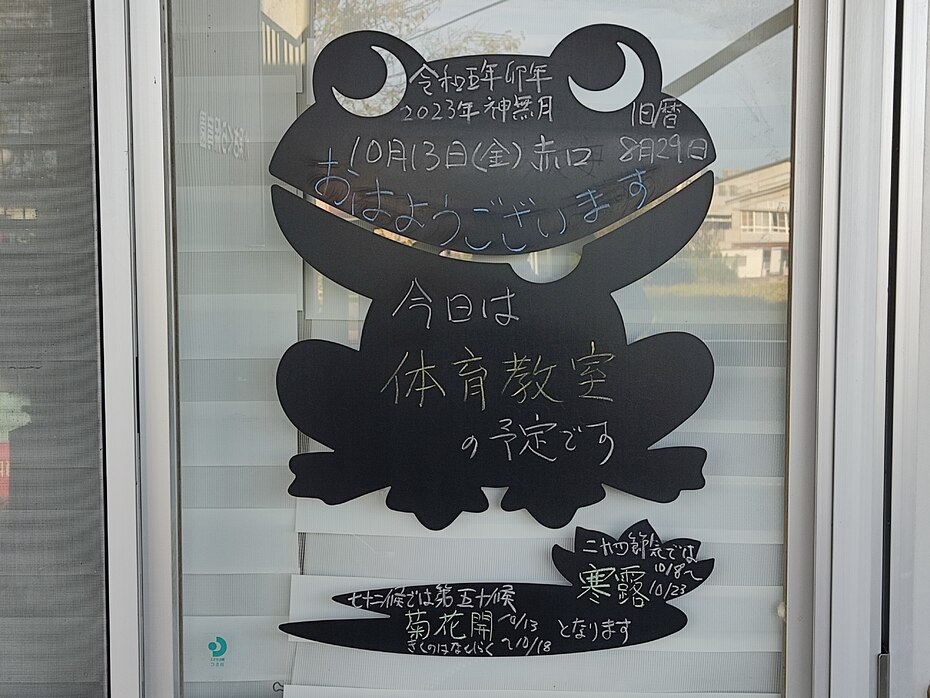 令和五年卯年
2023年神無月
旧暦
10月13日(金)赤口 8月29日
おはようございます
今日は
体育教室
の予定です
二十四節気では
寒露
10/8〜
10/23
七十二候では第五十候
菊花開 10/13
きくのはなひらく 〜10/18
となります